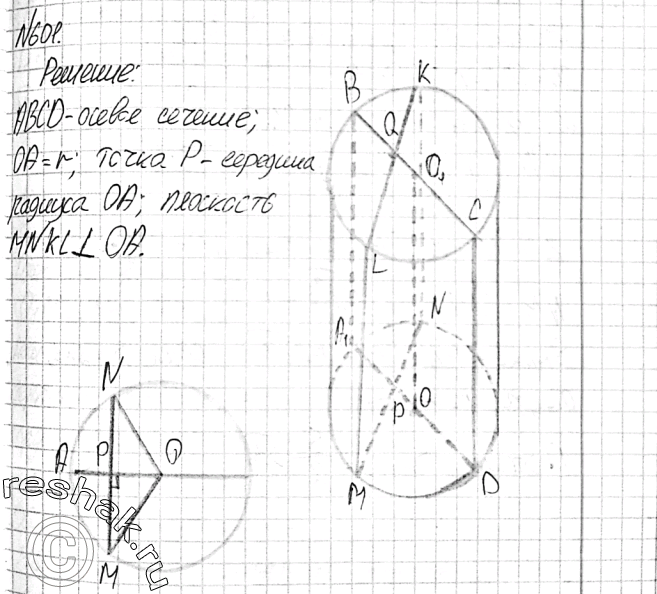 N60P.
Решение:
ABCD-осевое сечение;
OA=r; точка P-середина
радиуса OA; плоскость
MNKL⊥OA.
K
B
Q
O₁
C
L
N
A₁
P
O
M
D
N
A
P
O
M
reshak.ru
©